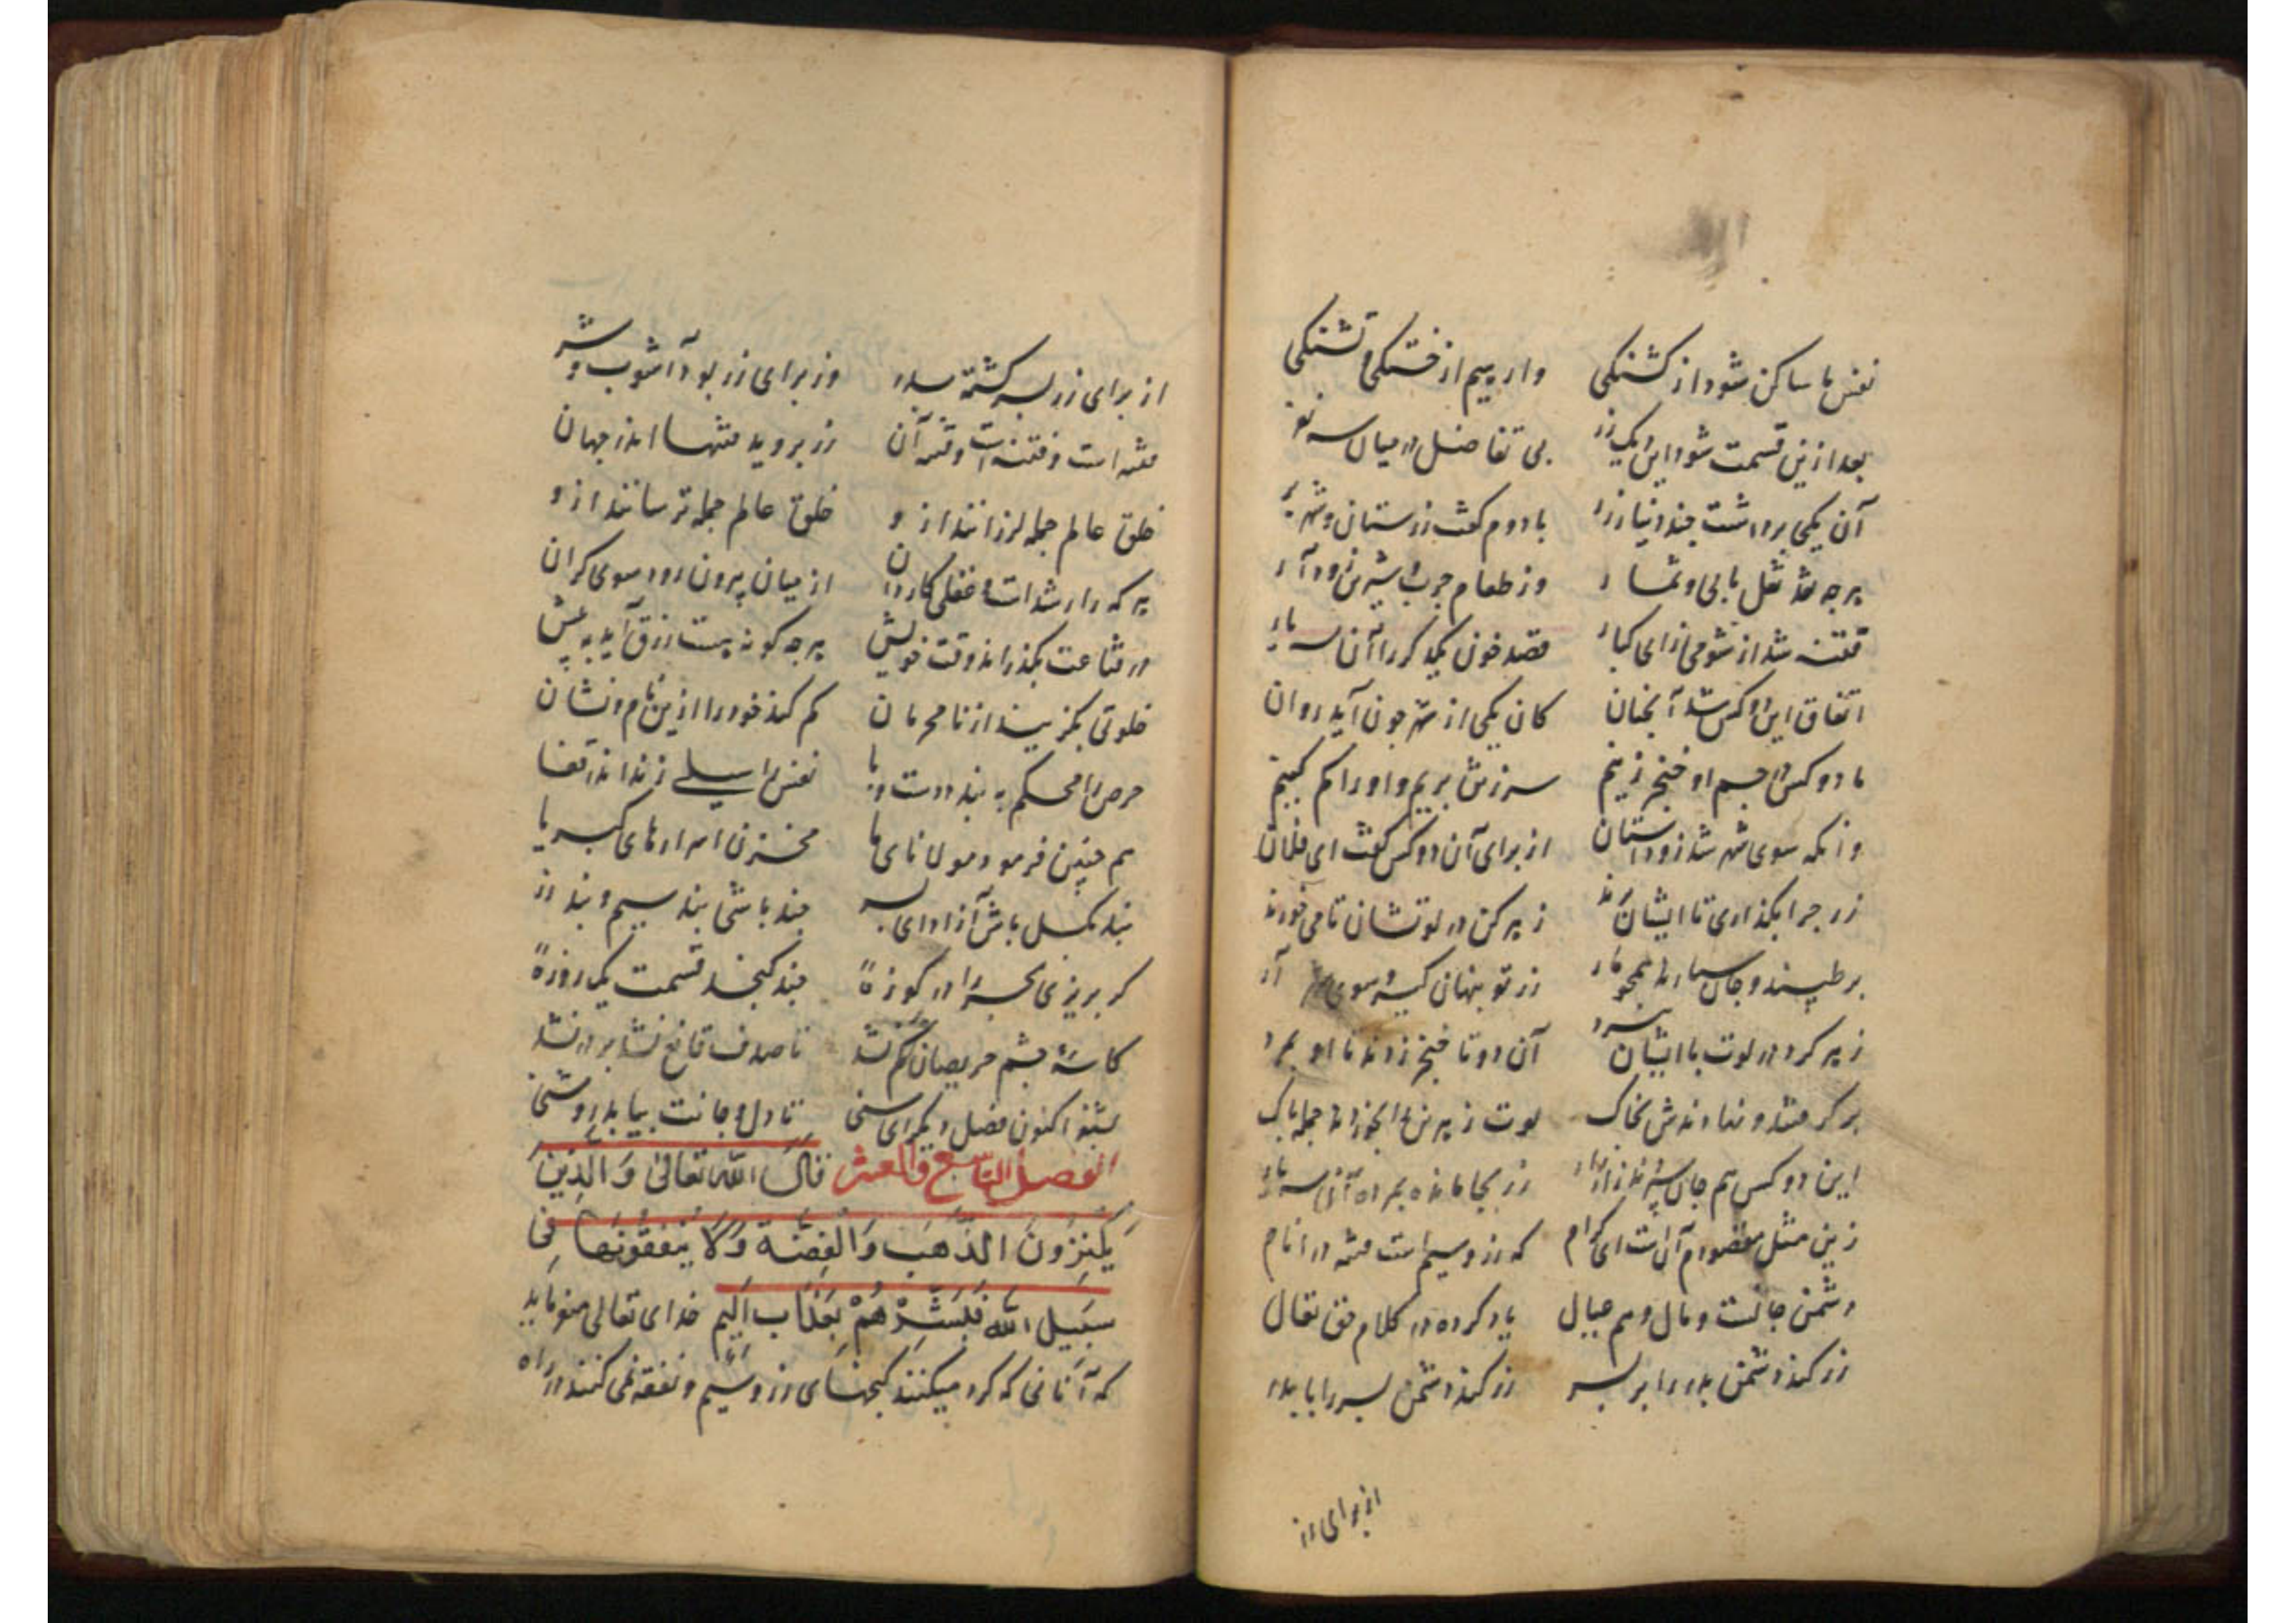 نفس ما ساکن شود از کشنکی وارهیم از خستکی و تشنکی
بعد ازین قسمت شود این دیک زر بی تفاضل در میان سه نفر
آن یکی برداشت چند دینار زر با دوم کفت زرستان و شهر بر
هرچه نقد نقل یابی و تمار وز طعام چرب و شیرین زود آر
فتنه شد از شومی زر ای کبار قصد خون یکدکر کرد آن سه یار
اتفاق این دو کس شد آنجنان کان یکی از شهر جون آید روان
ما دو کس در جسم او خنجر زنیم سر زتنش بریم و او را کم کنیم
وانکه سوی شهر شد زو داستان از برای آن دو کس کفت ای فلان
زر جرا بکذاری تا ایشان برند زهر کن در لوتشان تا می خورند
بر طپیند و جان سپارند همجو مار زر تو پنهان کیر و سوی آر
زهر کرد در لوت با ایشان سپرد آن دو تا خنجر زدند تا او بمرد
بر کرفتند و نهادندش بخاک لوت زهرین را بخوردند جمله پاک
این دو کس هم جان سپردند زار زار زر بجا مانده بمرده آن سه یار
زین مثل مقصودم آنست ای کرام که زر و سیم است فتنه در انام
دشمن جانست و مال و هم عیال یاد کرده در کلام حق تعال
زر کند دشمن پدر را بر پسر زر کند دشمن پسر را با پدر
از برای زر
از برای زر پسر کشته پدر وز برای زر بود آشوب و شر
فتنه است و فتنه است و فتنه آن زر بروید فتنها اندر جهان
خلق عالم جمله لرزانند از و خلق عالم جمله ترسانند از و
هر که را رشد است و عقل کاردان از میان بیرون رود سوی کران
در قناعت بکذراند وقت خویش هرجه کونه هست رزق آید به پیش
خلوتی بکزیند از نامحرمان کم کند خود را ازین نام و نشان
حرص را محکم به بندد دست و پا نفس را سیلی زند اندر قفا
هم چنین فرمود مولانای ما مخزن اسرارهای کبریا
بند بکسل باش آزاد ای پسر چند باشی بند سیم و بند زر
کر بریزی بحر را در کوزۀ چند کنجد قسمت یک روزۀ
کاسۀ چشم حریصان پر نشد تا صدف قانع نشد پر در نشد
بشنو اکنون فصل دیکر ای سنی تا دل و جانت بیابد روشنی
الفصل التاسع و العشر قال الله تعالی وَالَّذِینَ
یَکْنِزُونَ الذَّهَبَ وَالْفِضَّةَ وَلَا یُنْفِقُونَهَا فِی
سَبِیلِ اللهِ فَبَشِّرْهُمْ بِعَذَابٍ اَلِیم خدای تعالی میفرماید
که آنانی که کرد میکنند کنجهای زر و سیم و نفقه نمی کنند در راه